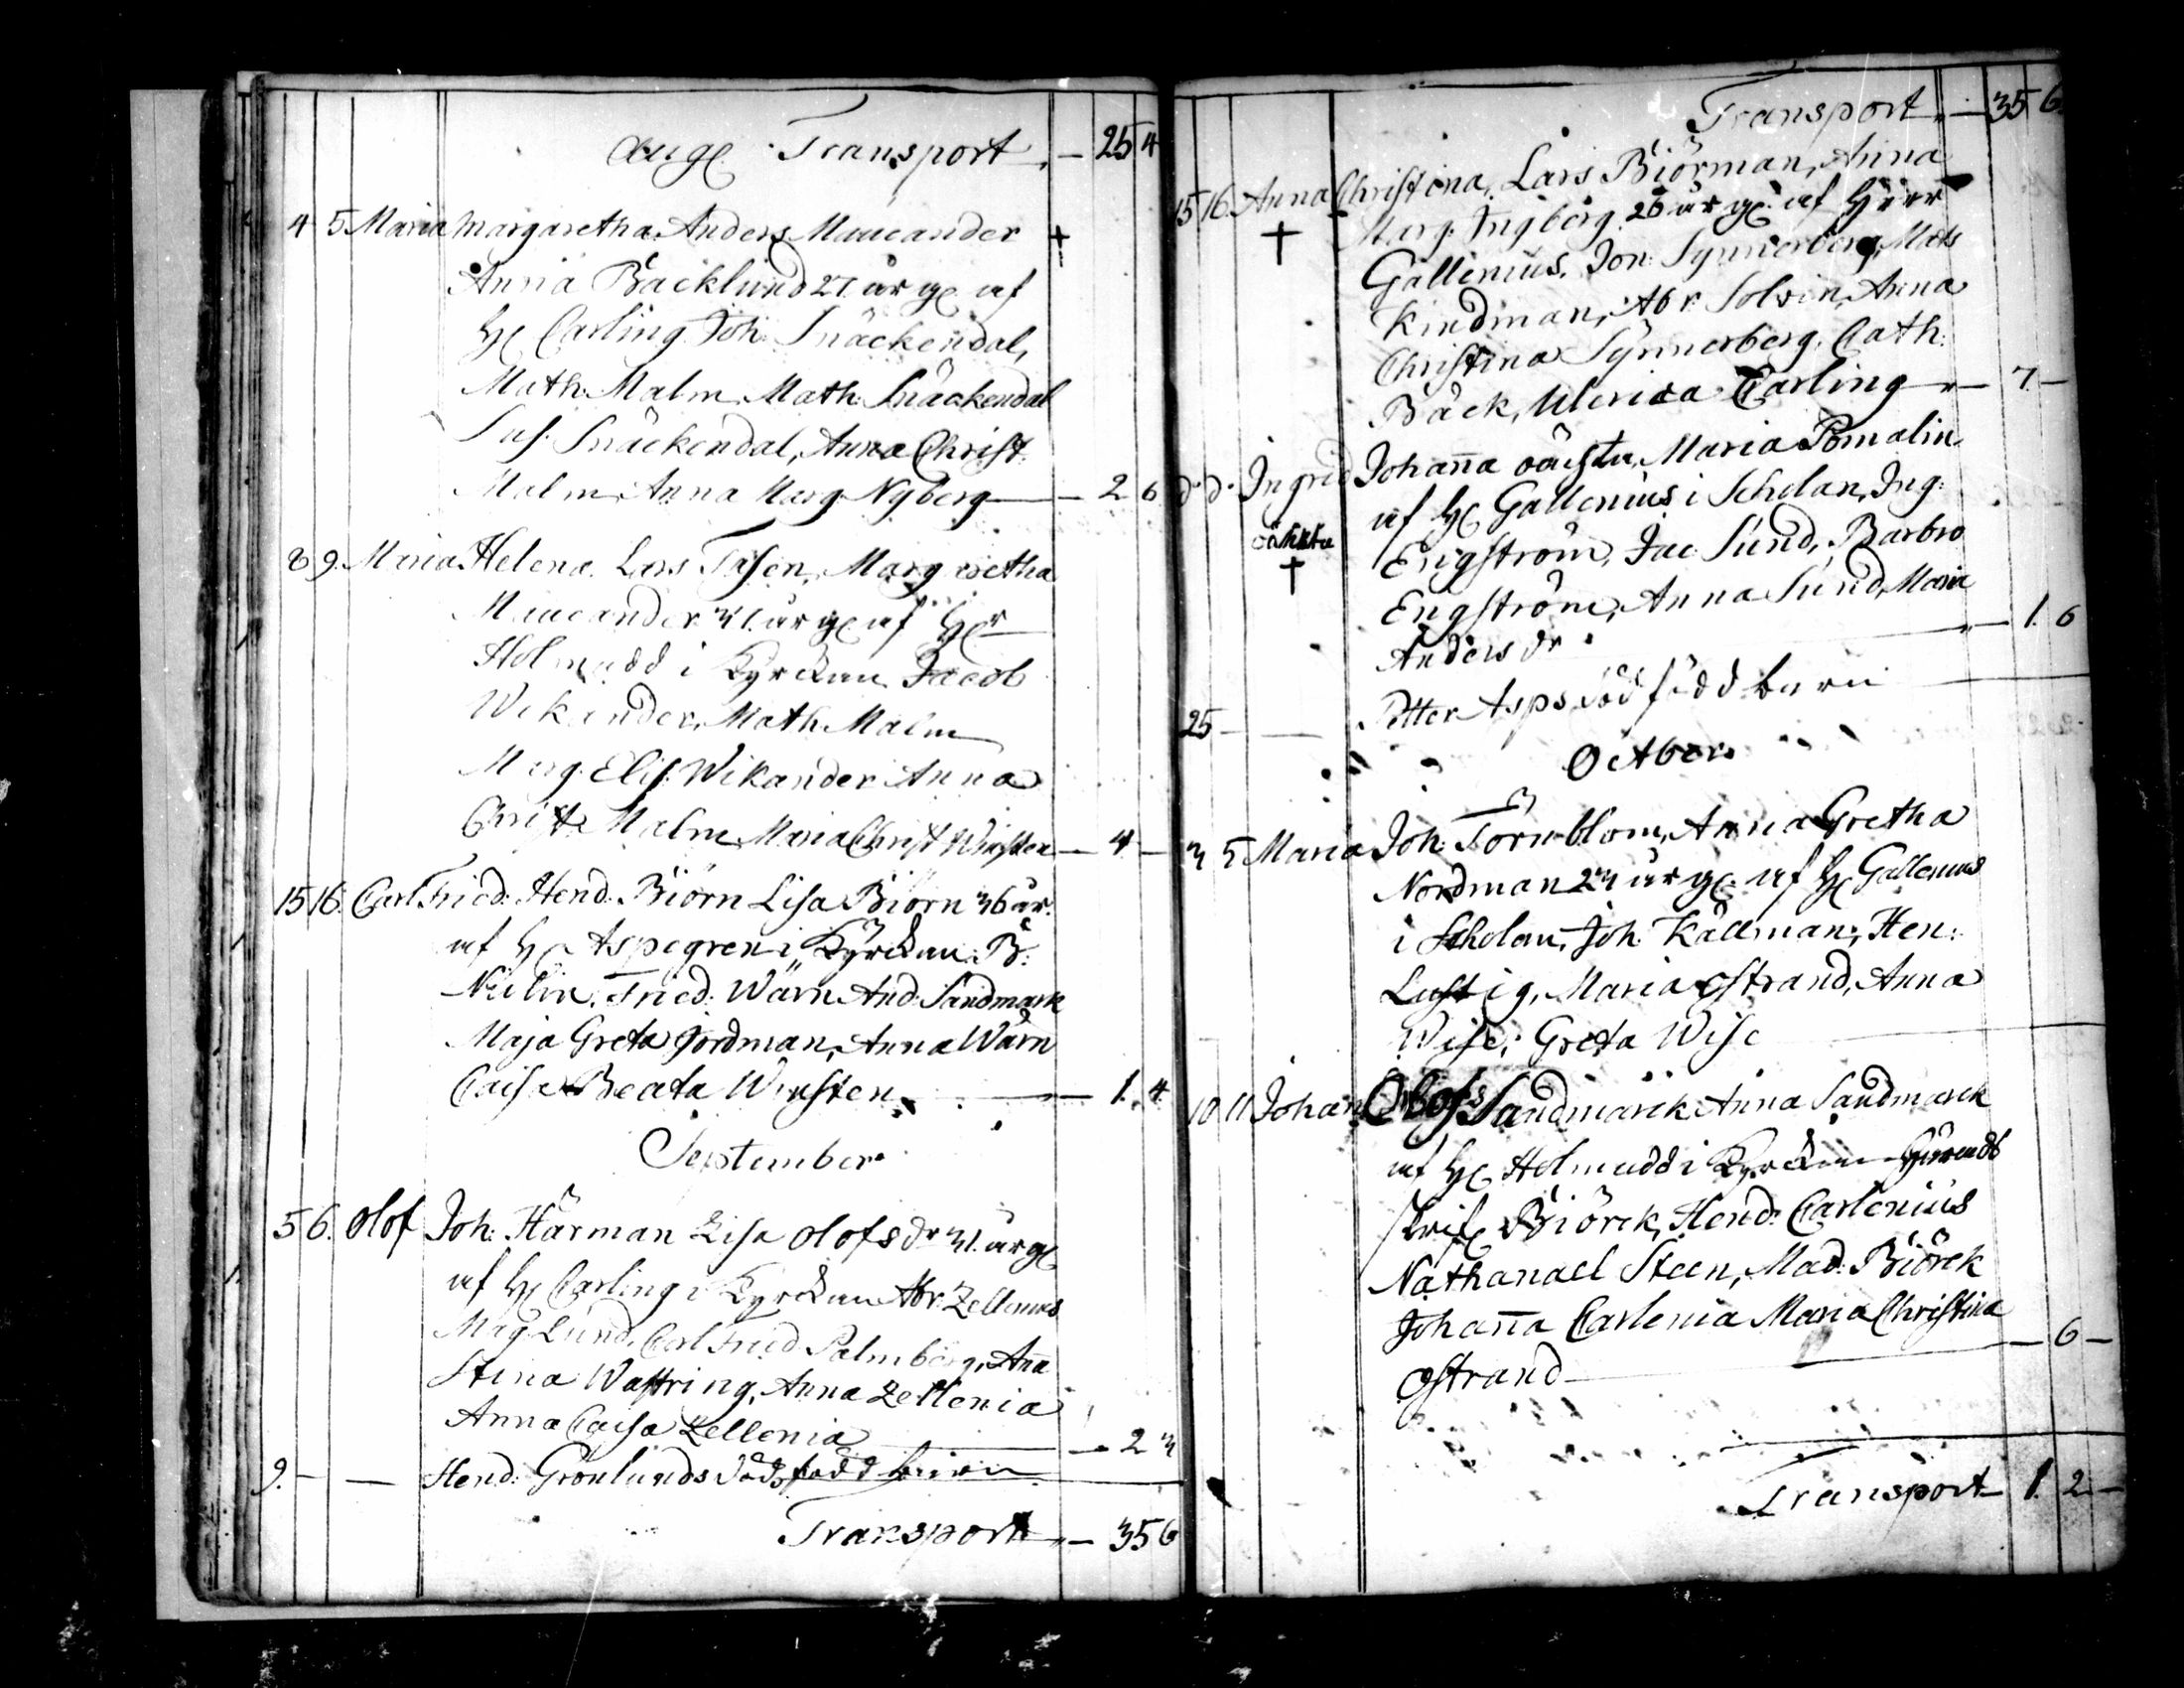 Aug. Transport — 25 4
4 5 Maria Margaretha. Anders Mancander †
Anna Backlund 27 år g. af
H. Carling Joh. Snäckendal,
Math: Malm, Math: Snäckendal
Sus. Snäckendal, Anna Christ.
Malm, Anna Marg. Nyberg — 2 6
8 9. Maria Helena. Lars Tasen, Margaretha
31 år g. af H:r
Holmudd i Kyrckan Jacob
Wikander, Math. Malm
Marg. Elis. Wikander Anna
Christ. Malm, Maria Christ — 4 —
15 16. Carl Fried: Hend. Biörn Lisa Biörn 36 år.
af H. Aspegren i Kyrckan B:
Fried: Wärn And: Sandmark
Maja Greta Nordman, Anna Wärn
Caisa Beata Winsten — 1. 4.
September
5 6. Olof Joh: Härman Lisa Olofs dr 31. år g.
af H. Carling i Kyrckan Abr. Zellenius
Mag Lund, Carl Fried Palmberg, Aña
Stina Wastring, Anna Zellenia
Anna Caisa Zellenia — 2 3
9. — — Hend: Grönlunds dödfödd barn
Transport — 35 6
Transport — 35 6
15 16. Anna Christina. Lars Biörman, Anna
† Marg. Ingberg. 26 år g. af Herr
Gallenius, Jon: Synnerberg, Mats
Kindman, Abr. Solvin, Anna
Christina Synnerberg, Cath:
Bäck, Ulerica Carling — 7 —
d. d. Ingrid Johaña oächta, Maria Pomalin
af H. Gallenius i Scholan, Ing:
oächta Engström, Jac Sund, Barbro
† Engström, Anna Sund, Maria
Anders dr — 1. 6
25 — Petter Asps dödfödd barn
October
3 5 Maria Joh: Törnblom, Anna Gretha
Nordman 23 år g. af H. Gallenius
i Scholan, Joh. Källman, Hen:
Lustig, Maria Ostrand, Anna
Wise, Greta Wise
10 11 Johan Olof Sandmarck Anna Sandmarck
af H. Holmudd i Kyrckan
Biörck, Hend: Carlenius
Nathanael Steen, Mad: Biörck
Johaña Carlenia Maria Christina
Ostrand — 6 —
Transport 1. 2 —